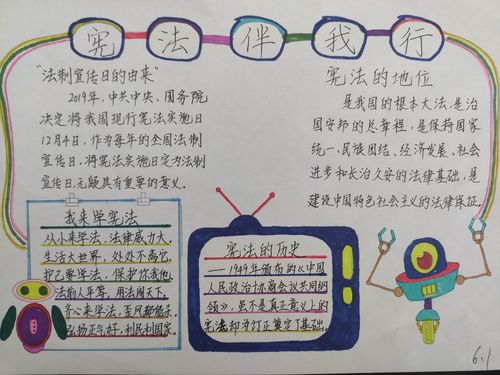 宪法伴我行
"法制宣传日的由来"
2019年,中共中央、国务院
决定将我国现行宪法实施日
12月4日,作为每年的全国法制
宣传日.将宪法实施日定为法制
宣传日.无疑具有重要的意义.
宪法的地位
是我国的根本大法,是治
国安邦的总章程,是保持国家
统一、民族团结、经济发展、社会
进步和长治久安的法律基础,是
建设中国特色社会主义的法律保证.
我来学宪法
从小来学法,法律威力大,
生活大世界,处处不离它,
护己要学法,保护你我他,
法前人平等,用法闯天下.
齐心来学法,
弘扬正气好,利民利国家.
宪法的历史
——1949年颁布的《中国
人民政治协商会议共同纲
领》,虽不是真正意义上的
宪法却为订正奠定了基础.
6.1